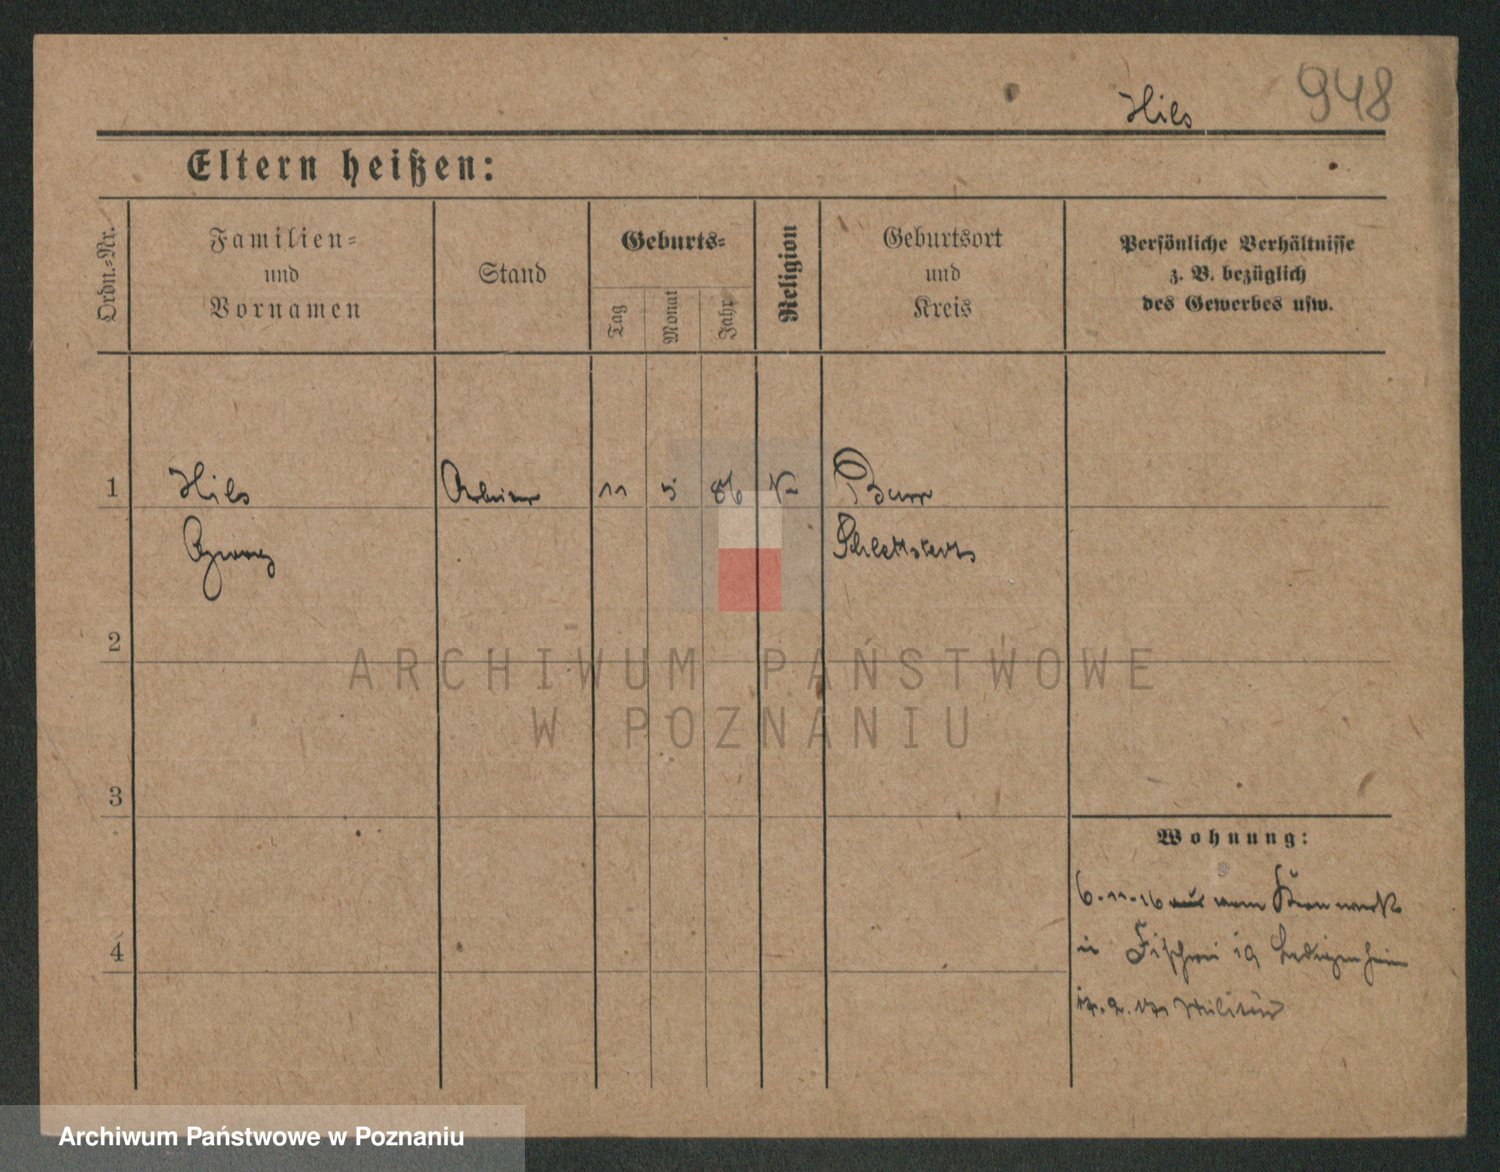 Hils 948
Eltern heißen:
Ordn.-Nr.
Familien-
und
Vornamen
Stand
Geburts-
Tag
Monat
Jahr
Religion
Geburtsort
und
Kreis
Persönliche Verhältnisse
z. B. bezüglich
des Gewerbes usw.
1 Hils Arbeiter 11 5 86 K Barr
Georg Schlettstadt
2
ARCHIWUM PAŃSTWOWE
W POZNANIU
3
Wohnung:
6.11.16 vom Kernwerk
4
in Fischerei 19 Ledigenheim
17.2.17 Militär
Archiwum Państwowe w Poznaniu